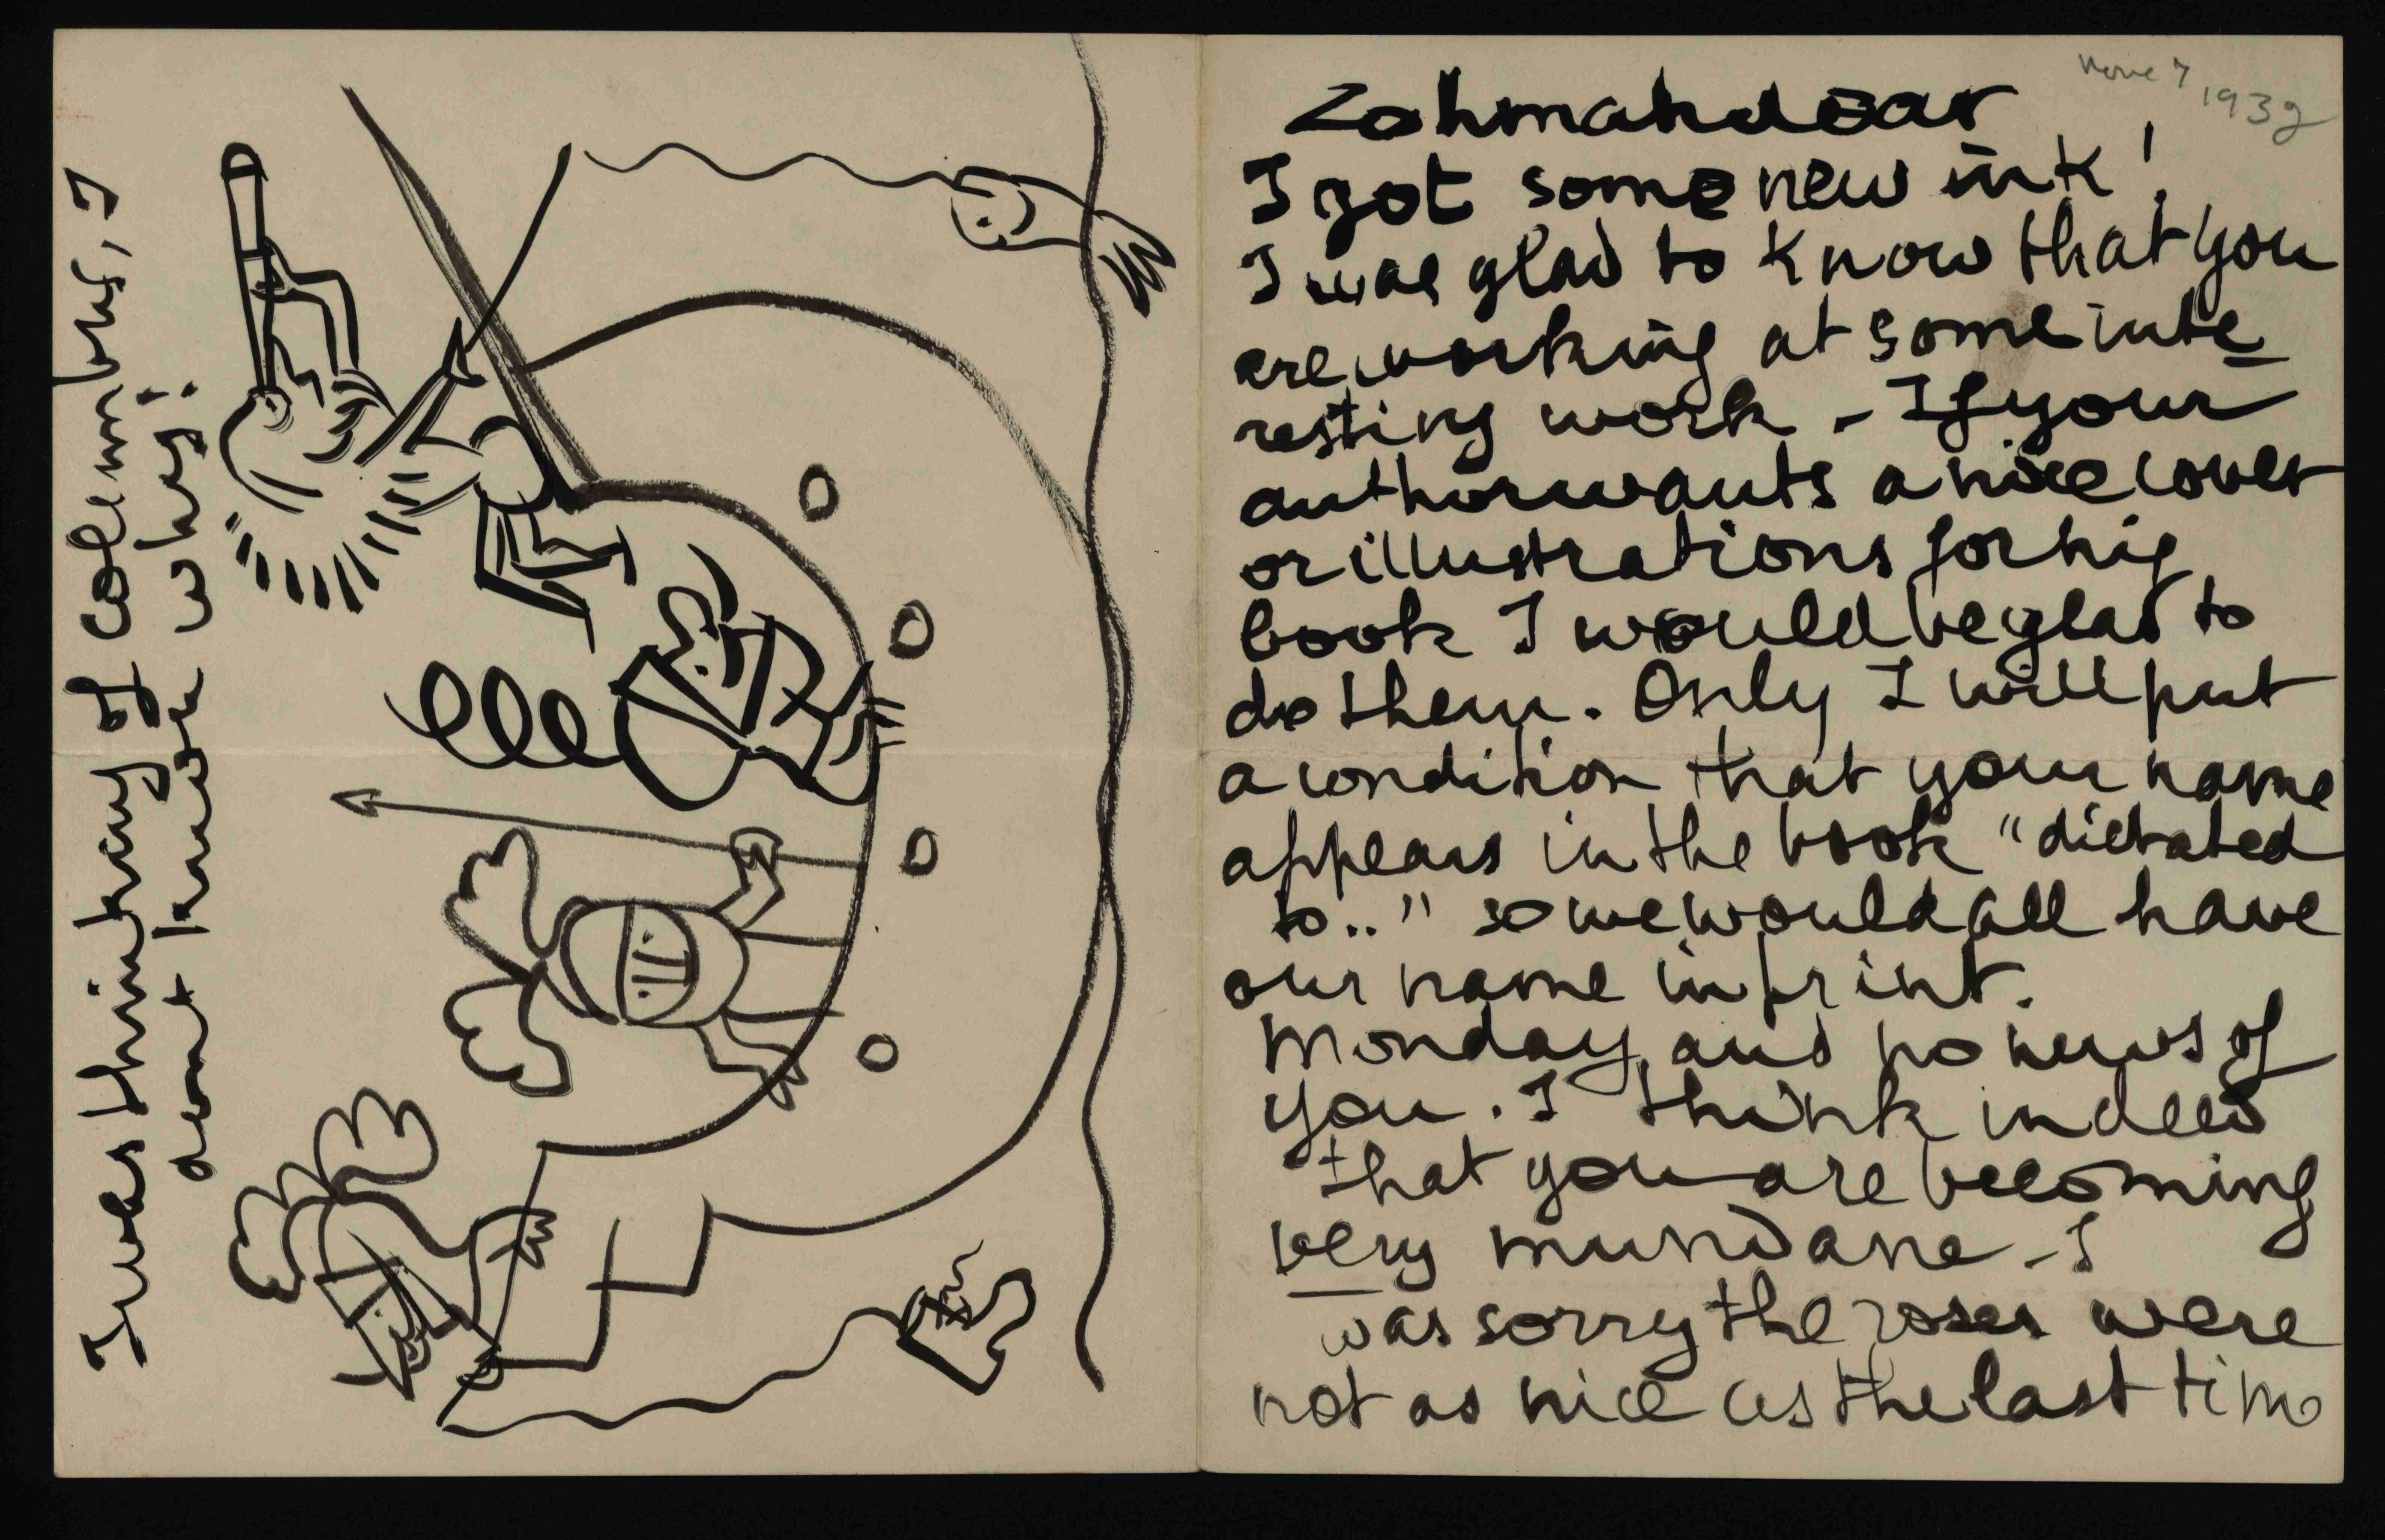 I was thinking of Columbus, I
dont know why!
Nove 7
1932
Zohmah dear
I got some new ink!
I was glad to know that you
are working at some inte
resting work - If your
author wants a nice cover
or illustrations for his
book I would be glad to
do them. Only I will put
a condition that your name
appears in the book "dictated
to.." so we would all have
our name in print.
Monday, and no news of
you. I think indeed
that you are becoming
very mundane - I
was sorry the roses were
not as nice as the last time